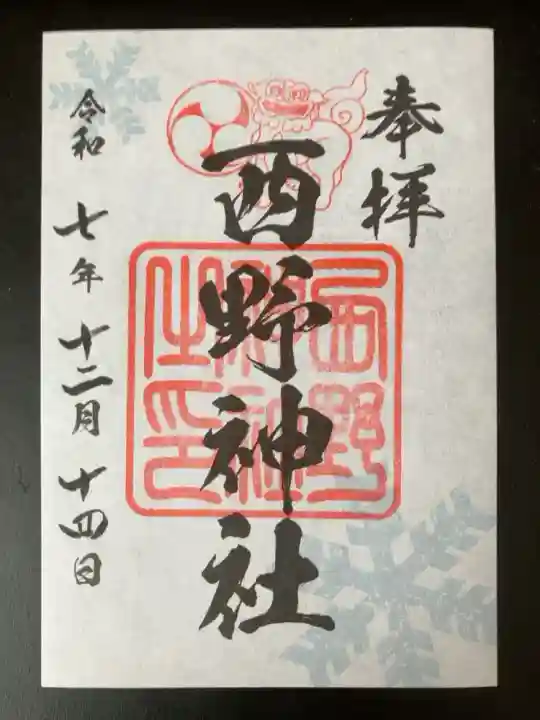 奉拝
西野神社
西野
神社
之印
令和 七年 十二月 十四日